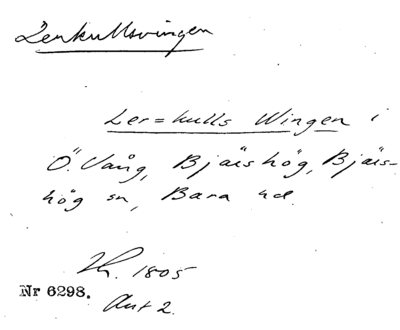 Lerkullsvingen
Ler=kulls Wingen i
Ö. Vång, Bjäíshög, Bjäís-
hög sn, Bara hd.
Lh. 1805
Nr 6298.
Akt 2.